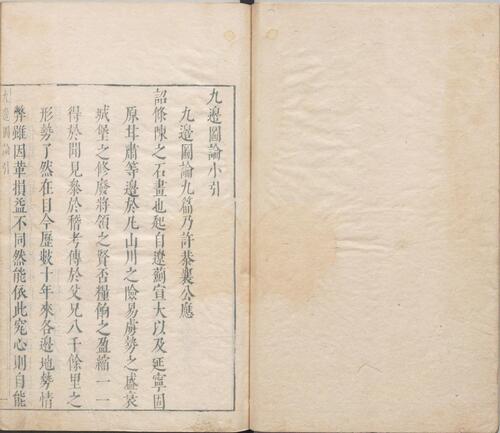 九邊圖論小引
九邊圖論九篇乃許恭襄公應
詔條陳之石畫也起自遼薊宣大以及延寧固
原甘肅等邊於凡山川之險易虜勢之盛衰
城堡之修廢將領之賢否糧餉之盈縮一一
得於聞見參於稽考傳於父兄八千餘里之
形勢了然在目今歷數十年來各邊地勢情
弊雖因革損益不同然能依此究心則自能
九邊圖論引
一